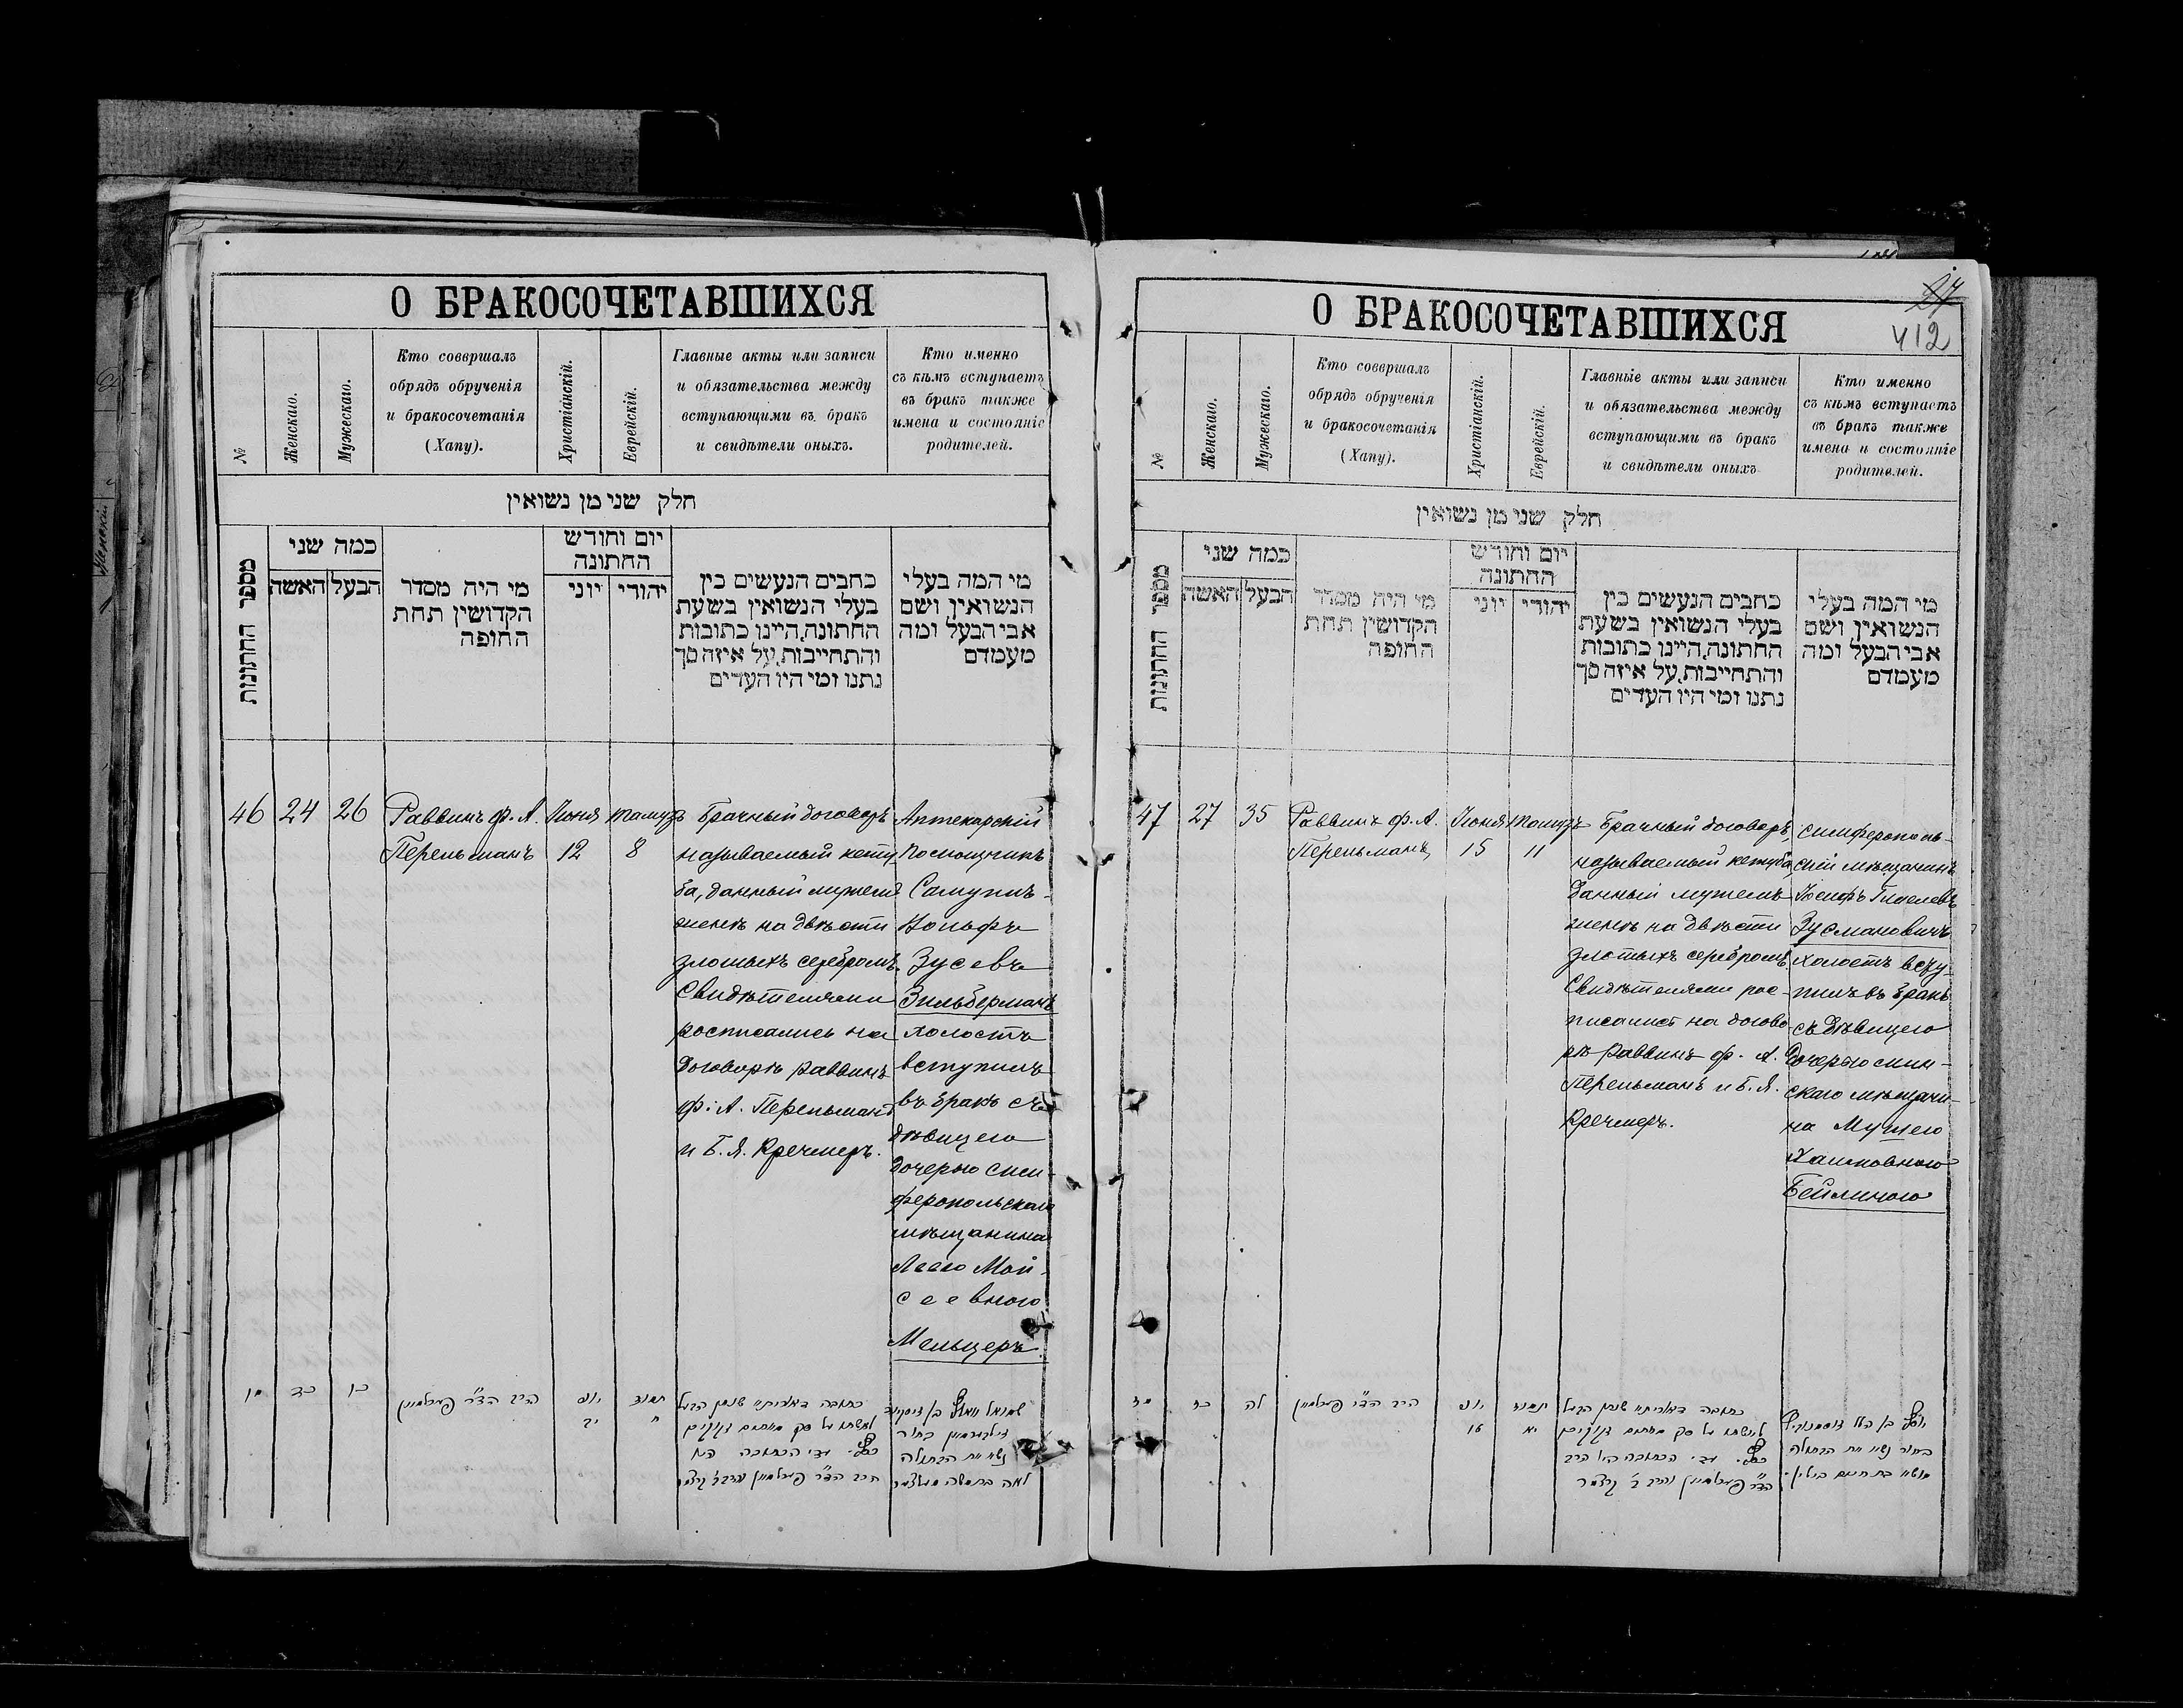 О БРАКОСОЧЕТАВШИХСЯ
№
Женскаго.
Мужескаго.
Кто совершалъ
обрядъ обрученія
и бракосочетанія
(Хапу).
Христіанскій.
Еврейскій.
Главные акты или записи
и обязательства между
вступающими въ бракъ
и свидѣтели оныхъ.
Кто именно
съ кѣмъ вступаетъ
въ бракъ также
имена и состояніе
родителей.
חלק שני מן נשואין
מספר החתונות
כמה שני
האשה
הבעל
מי היה מסדר
הקדושין תחת
החופה
יום וחודש
החתונה
יוני
יהודי
כתבים הנעשים בין
בעלי הנשואין בשעת
החתונה, היינו כתובות
והתחייבות, על איזה סך
נתנו ומי היו העדים
מי המה בעלי
הנשואין ושם
אבי הבעל ומה
מעמדם
46
24
26
Раввинъ ф. А.
Перельманъ
Іюня
12
Тамузъ
8
Брачный договоръ
называемый кету-
ба, данный мужемъ
женѣ на двѣсти
злотыхъ серебромъ.
Свидѣтелями
росписались на
договорѣ раввинъ
ф. А. Перельманъ
и Б. Я. Кречмеръ.
Аптекарскій
помощникъ
Самуилъ-
Вольфъ
Зусевъ
Зильберманъ
холостъ
вступилъ
въ бракъ съ
дѣвицею
дочерью сим-
феропольскаго
мѣщанина
Леею Мои-
сеевною
Мельцеръ.
מו
כד
כו
הרב הד״ר פערלמאן
יוני
יב
תמוז
ח
О БРАКОСОЧЕТАВШИХСЯ
412
№
Женскаго.
Мужескаго.
Кто совершалъ
обрядъ обрученія
и бракосочетанія
(Хапу).
Христіанскій.
Еврейскій.
Главные акты или записи
и обязательства между
вступающими въ бракъ
и свидѣтели оныхъ
Кто именно
съ кѣмъ вступаетъ
въ бракъ также
имена и состояніе
родителей.
חלק שני מן נשואין
מספר החתונות
כמה שני
האשה
הבעל
מי היה מסדר
הקדושין תחת
החופה
יום וחודש
החתונה
יוני
יהודי
כתבים הנעשים בין
בעלי הנשואין בשעת
החתונה, היינו כתובות
והתחייבות, על איזה סך
נתנו ומי היו העדים
מי המה בעלי
הנשואין ושם
אבי הבעל ומה
מעמדם
47
27
35
Раввинъ ф. А.
Перельманъ
Іюня
15
Тамузъ
11
Брачный договоръ,
называемый кетуба,
данный мужемъ
женѣ на двѣсти
злотыхъ серебромъ.
Свидѣтелями рос-
писались на догово-
рѣ раввинъ ф. А.
Перельманъ и Б. Я.
Кречмеръ.
Симферополь-
скій мѣщанинъ
Іосифъ
Зусмановичъ
холостъ всту-
пилъ въ бракъ
съ дѣвицею
дочерью мин-
скаго мѣщани-
на Мушею
Хаимовною
Бейлиною
מז
כז
לה
הרב הד״ר פערלמאן
יוני
תמוז
יא